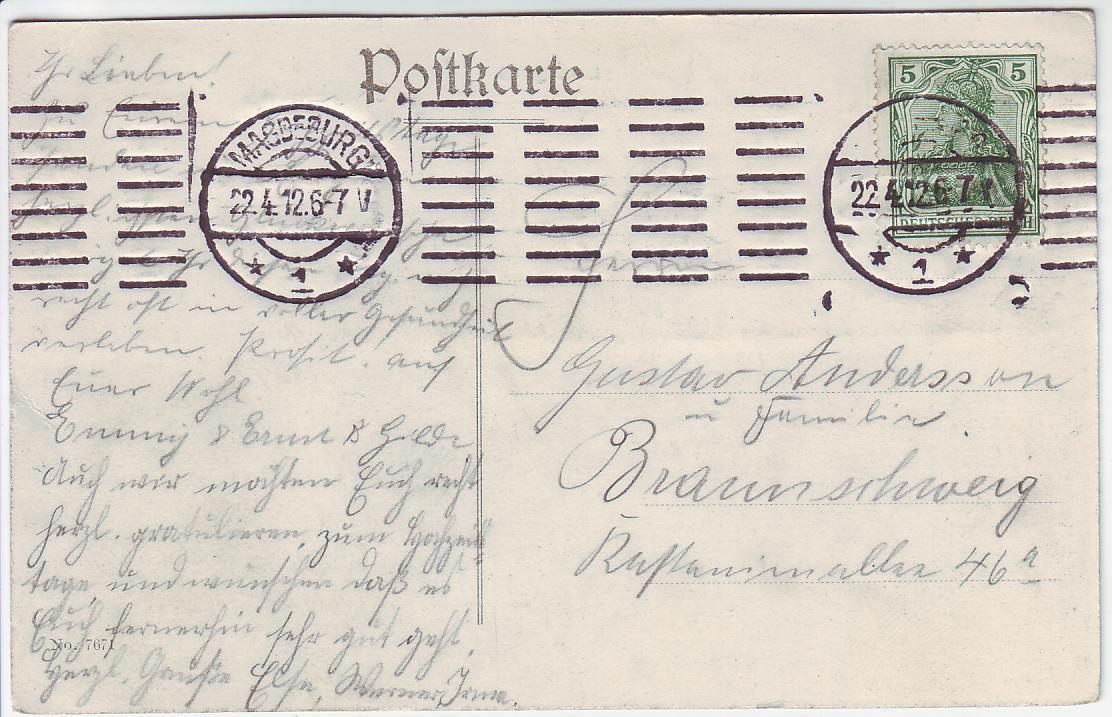 Postkarte
Ihr Lieben!
Zu Eurem
herzl.
recht oft in voller Gesundheit
verleben. Prosit. auf
Euer Wohl
Emmy & Ernst & Hilde
Auch wir möchten Euch recht
herzl. gratulieren, zum Hochzeits
tage, und wünschen daß es
Euch fernerhin sehr gut geht.
Herzl. Grüße Else, Werner, Irma.
No. 7671
MAGDEBURG
22.4.12.6-7 V
* 1 *
5 5
22.4.12.6-7 V
* 1 *
Herrn
Gustav Andersson
u Familie.
Braunschweig
Kastanienallee 46a